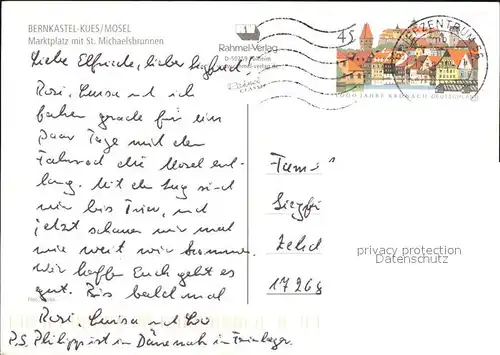 BERNKASTEL-KUES/MOSEL
Marktplatz mit St. Michaelsbrunnen
Rahmel-Verlag
D-50259 Pulheim
45
BRIEFZENTRUM
1000 JAHRE KRONACH DEUTSCHLAND
Liebe Elfriede, lieber Siegfried,
Rosi, Luisa und ich
fahren gerade für ein
Paar Tage mit dem
Fahrrad die Mosel ent-
lang. Mit dem Zug sind
wir bis Trier, und
jetzt schauen wir mal
wie weit wir kommen.
Wir hoffen Euch geht es
gut. Bis bald mal
Rosi, Luisa und
P.S. Philipp ist in Dänemark im Ferienlager.
Fam.
Siegfri
Zehd
17268
privacy protection
Datenschutz